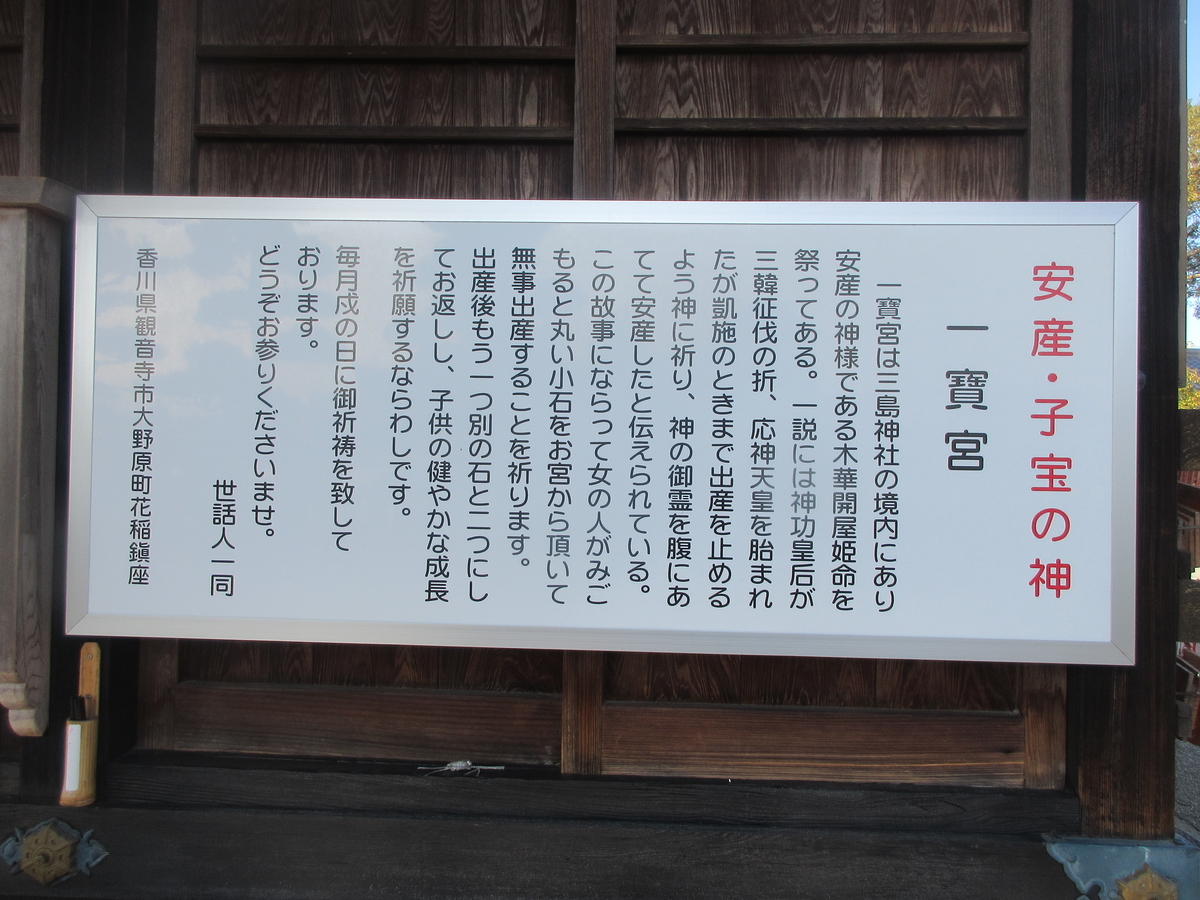 安産・子宝の神
一寳宮
一寳宮は三島神社の境内にあり
安産の神様である木華開屋姫命を
祭ってある。一説には神功皇后が
三韓征伐の折、応神天皇を胎まれ
たが凱施のときまで出産を止める
よう神に祈り、神の御霊を腹にあ
てて安産したと伝えられている。
この故事にならって女の人がみご
もると丸い小石をお宮から頂いて
無事出産することを祈ります。
出産後もう一つ別の石と二つにし
てお返しし、子供の健やかな成長
を祈願するならわしです。
毎月戍の日に御祈祷を致して
おります。
どうぞお参りくださいませ。
世話人一同
香川県観音寺市大野原町花稲鎭座